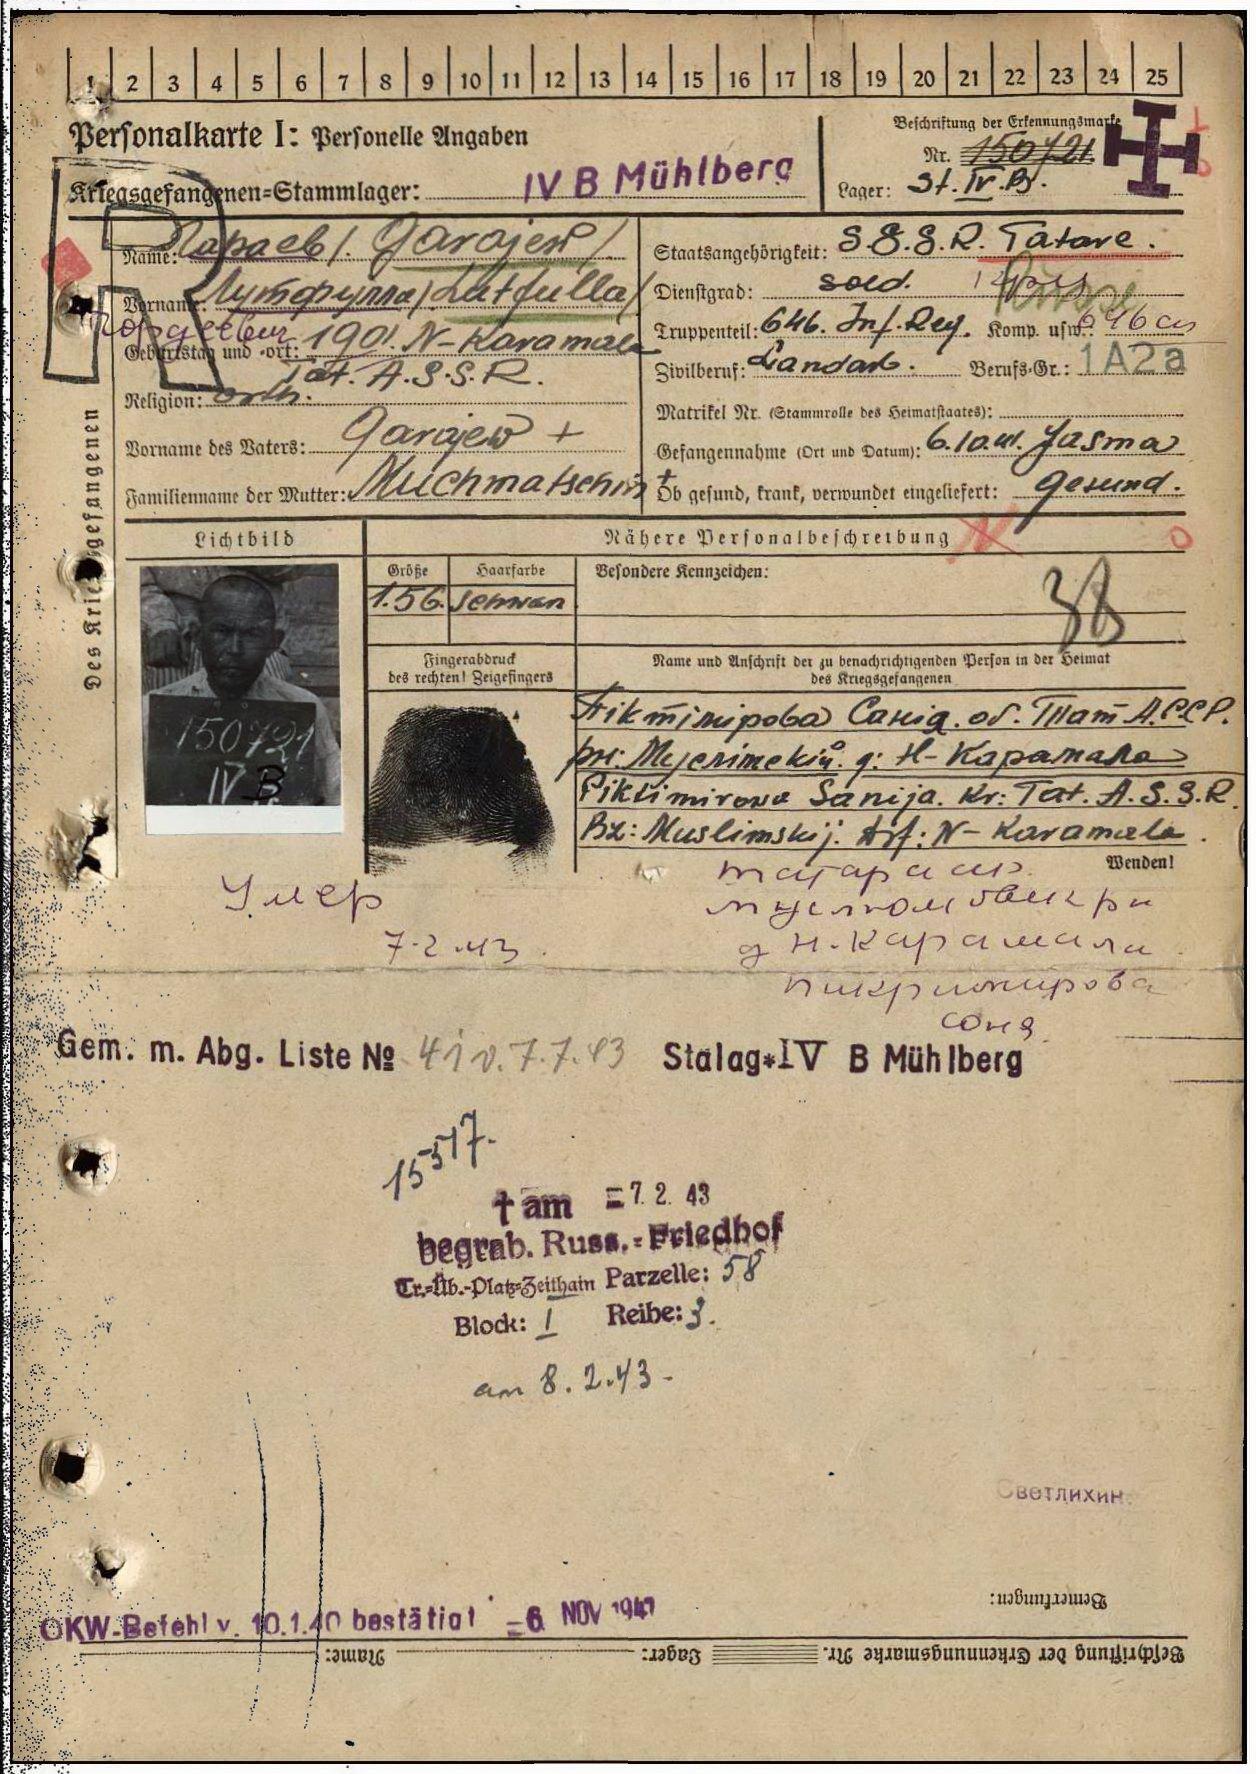 1 2 3 4 5 6 7 8 9 10 11 12 13 14 15 16 17 18 19 20 21 22 23 24 25
Personalkarte I: Personelle Angaben
Beschriftung der Erkennungsmarke
Nr. 150721
Kriegsgefangenen-Stammlager: IV B Mühlberg
Lager: St. IV. B.
Des Kriegsgefangenen
Name: Гараев /. Garajew /
Vorname: Лутфулла / Lutfulla /
Geburtstag und -ort: 1901. N-Karamala
Tat. A.S.S.R.
Religion: orth.
Vorname des Vaters: Garajew +
Familienname der Mutter: Muchmatschin +
Staatsangehörigkeit: S.S.S.R. Tatare.
Dienstgrad: sold.
Truppenteil: 646. Inf. Reg. Komp. usw.: 646
Zivilberuf: Landarb. Berufs-Gr.: 1A2a
Matrikel Nr. (Stammrolle des Heimatstaates):
Gefangennahme (Ort und Datum): 6.10.41. Jasma
Ob gesund, krank, verwundet eingeliefert: gesund.
Lichtbild
Nähere Personalbeschreibung
Größe Haarfarbe Besondere Kennzeichen:
1.56. schwarz
38
150721
IV B
Fingerabdruck
des rechten! Zeigefingers
Name und Anschrift der zu benachrichtigenden Person in der Heimat
des Kriegsgefangenen
Пiктiмiрова Санiя. об. Тат А.С.С.Р.
рн: Муслiмскiй. д: Н-Карамала
Piktimirowa Sanija. Kr: Tat. A.S.S.R.
Bz: Muslimskij. Drf: N-Karamala.
Wenden!
Умер
7-2-43.
д Н-Карамали
Соня
Gem. m. Abg. Liste № 41 v. 7.7.43 Stalag*IV B Mühlberg
15517.
† am =7. 2. 43
begrab. Russ.-Friedhof
Tr.-Üb.-Platz-Zeithain Parzelle: 58
Block: I Reihe: 3.
am 8.2.43.
Светлихин
Bemerkungen:
OKW-Befehl v. 10.1.40 bestätigt =6. NOV 1941
Beschriftung der Erkennungsmarke Nr. Lager: Name: